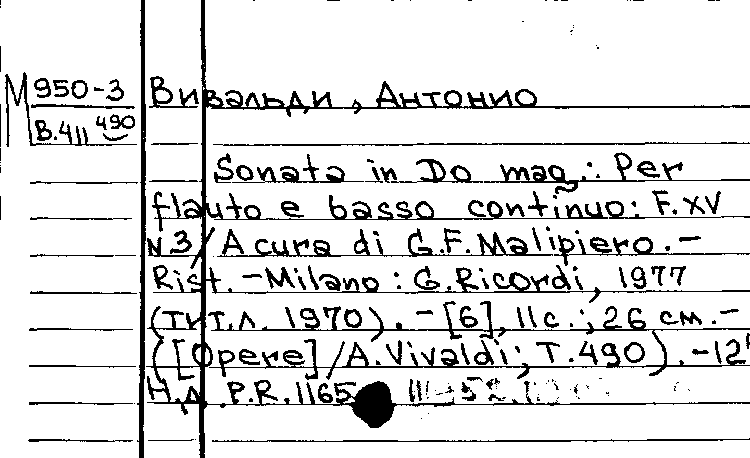 М 950-3 Вивальди, Антонио
В.411 490
Sonata in Do mag.: Per
flauto e basso continuo: F.XV
N.3/A cura di G.F.Malipiero.-
Rist.-Milano: G.Ricordi, 1977
(тит.л. 1970).-[6], 11с.; 26 см.-
([Opere]/A.Vivaldi; T.490).-12'
Н.д. P.R.1165